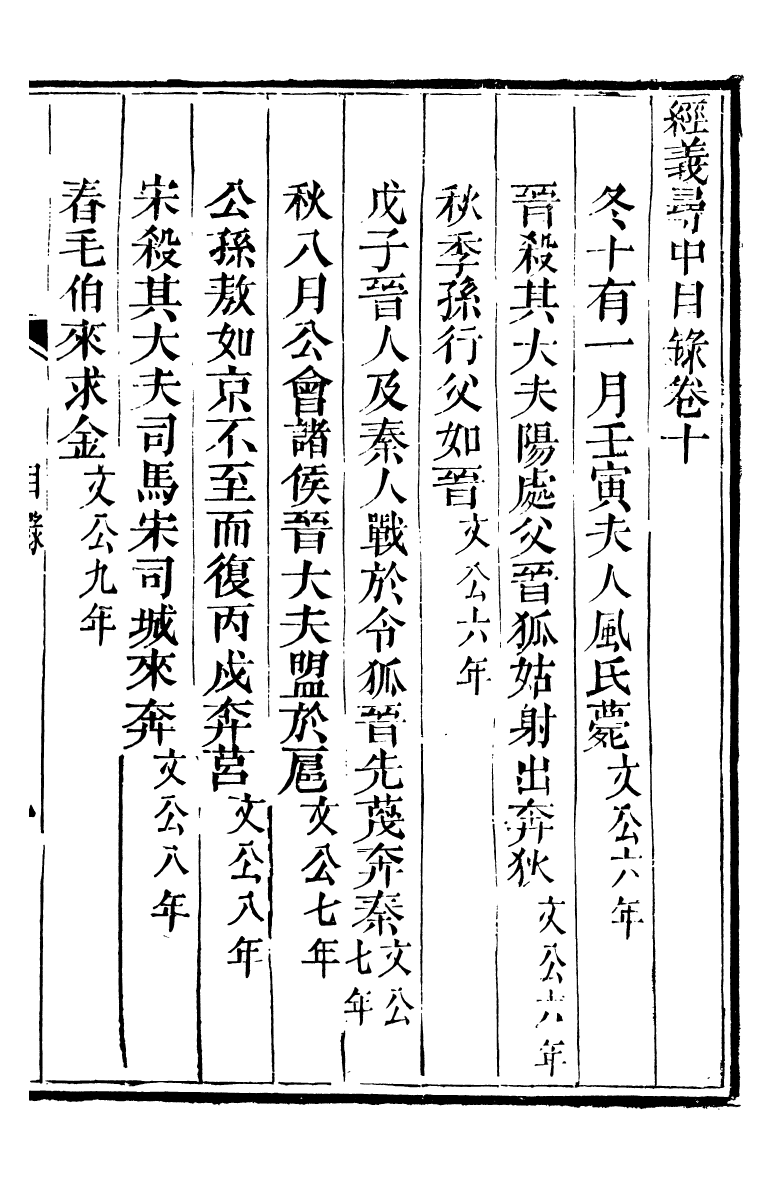 經義尋中目錄卷十
冬十有一月壬寅夫人風氏薨文公六年
晉殺其大夫陽處父晉狐姑射出奔狄文公六年
秋季孫行父如晉文公六年
戊子晉人及秦人戰於令狐晉先蔑奔秦文公七年
秋八月公會諸侯晉大夫盟於扈文公七年
公孫敖如京不至而復丙戌奔莒文公八年
宋殺其大夫司馬宋司城來奔文公八年
春毛伯來求金文公九年
目錄